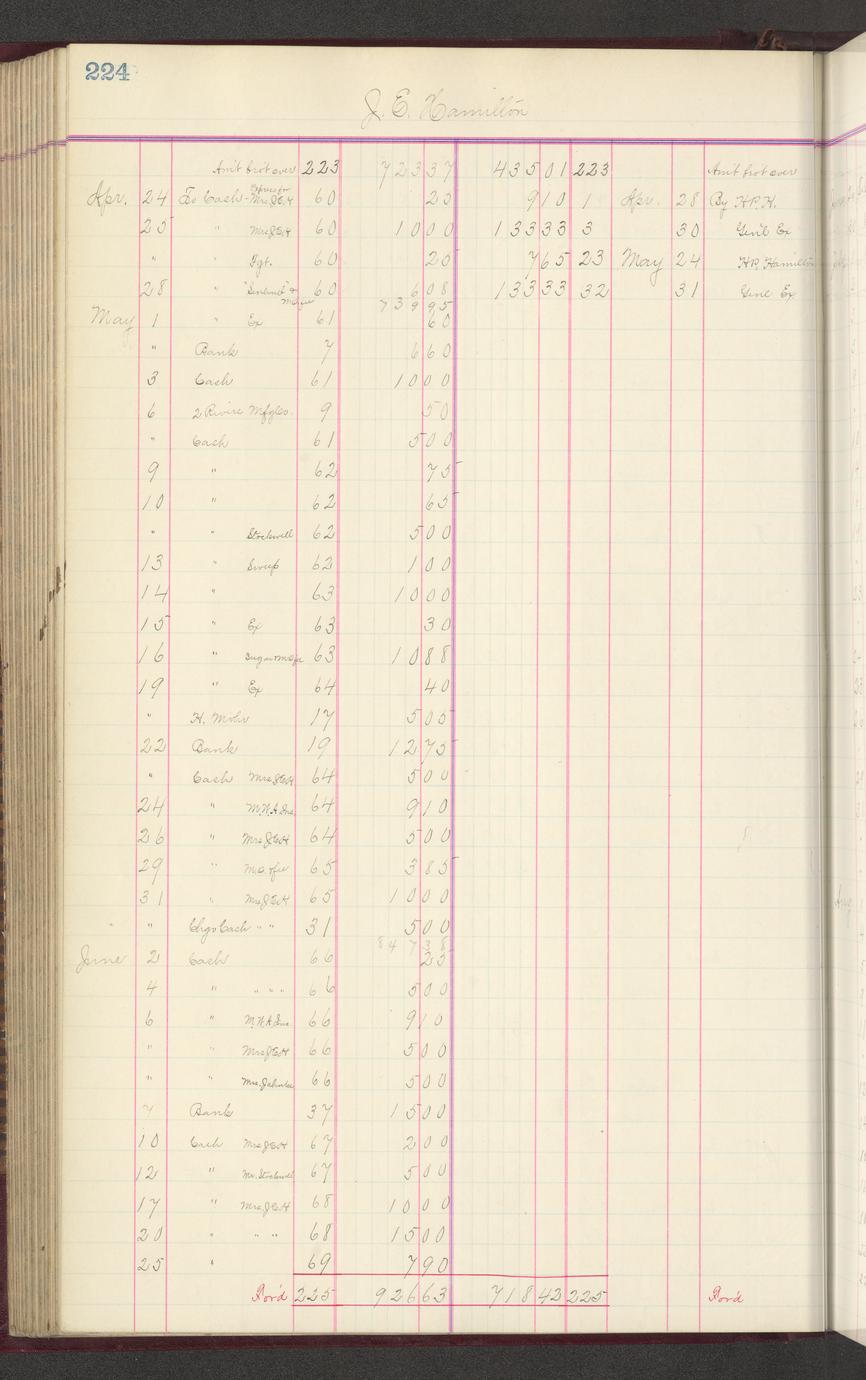 224
J. E. Hamilton
Am't brot over 223 723 37 435 01 223 Am't brot over
Apr. 24 To Cash - Express for Mrs J.E.H 60 25 9 10 1 Apr. 28 By H.P.H.
25 " Mrs J.E.H 60 10 00 133 33 3 30 Gen'l Ex
" " Fgt. 60 20 7 65 23 May 24 H.P. Hamilton
28 " "Sentinel" & 60 6 08 133 33 32 31 Genl Ex
739 95
May 1 " Ex 61 60
" Bank 7 6 60
3 Cash 61 10 00
6 2 Rivire Mfg Co. 9 50
" Cash 61 5 00
9 " 62 75
10 " 62 65
" " Stockwell 62 5 00
13 " Sweep 62 1 00
14 " 63 10 00
15 " Ex 63 30
16 " Sugar 63 10 88
19 " Ex 64 40
" H. Mohr 17 5 05
22 Bank 19 12 75
" Cash Mrs J.E.H 64 5 00
24 " M.W.A Ins. 64 9 10
26 " Mrs J.E.H 64 5 00
29 " 65 3 85
31 " Mrs J.E.H 65 10 00
" Chgo Cash " " 31 5 00
847 38
June 2 Cash 66 25
4 " " " " 66 5 00
6 " M.W.A Ins. 66 9 10
" " Mrs J.E.H 66 5 00
" " Mrs. 66 5 00
7 Bank 37 15 00
10 Cash Mrs J.E.H 67 2 00
12 " Mr. Stockwell 67 5 00
17 " Mrs J.E.H 68 10 00
20 " " " 68 15 00
25 " 69 7 90
For'd 225 926 63 718 42 225 For'd